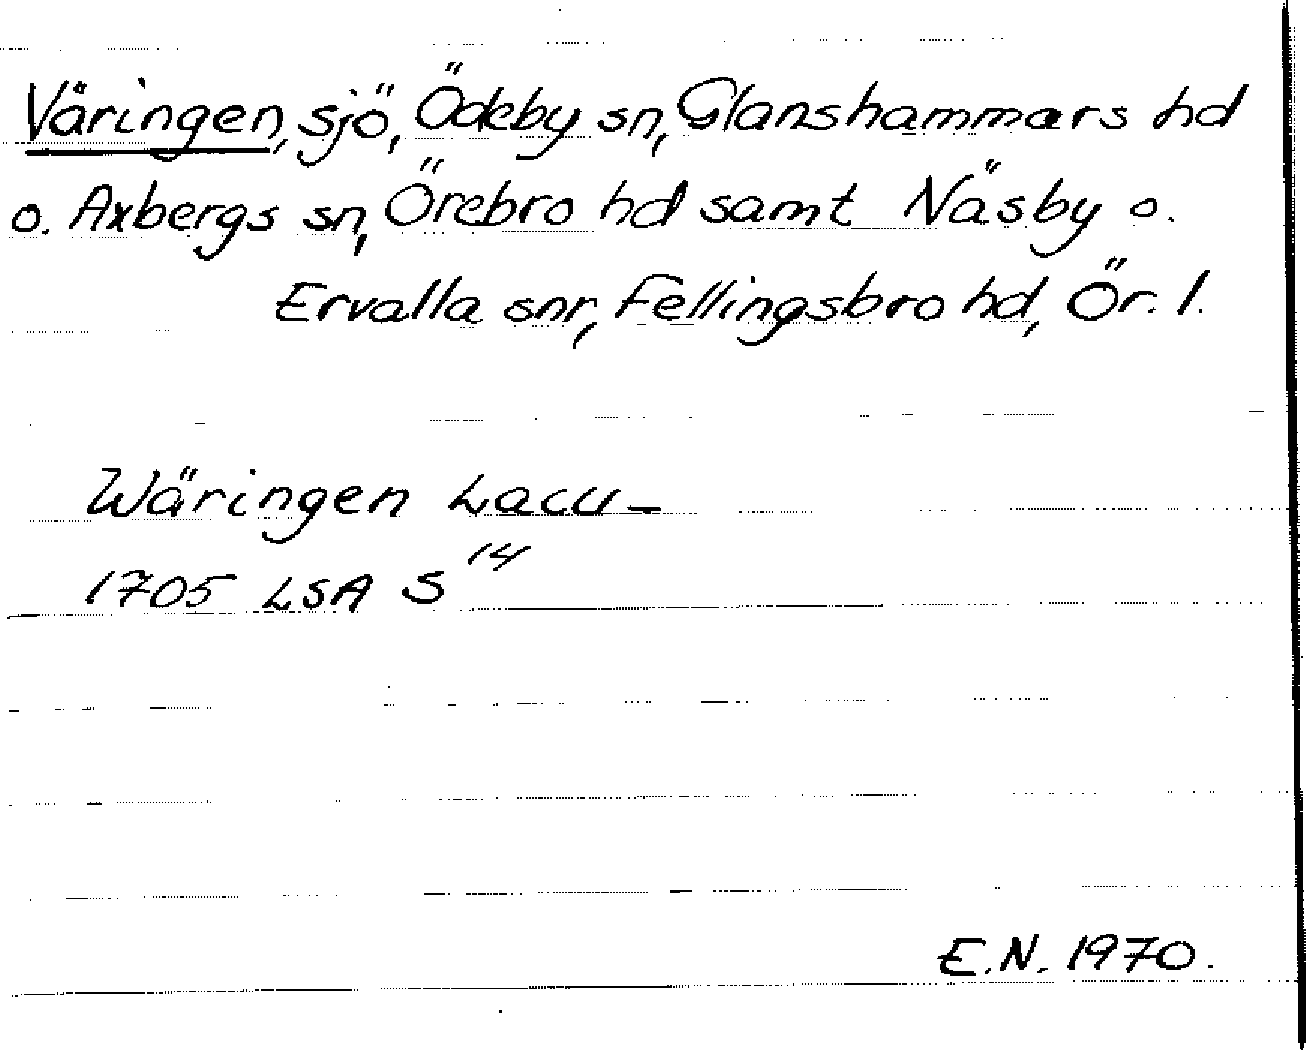 Väringen, sjö, Ödeby sn, Glanshammars hd
o. Axbergs sn, Örebro hd samt Näsby o.
Ervalla snr, Fellingsbro hd, Ör. l.
Wäringen Lacu-
1705 LSA S 14
E.N. 1970.